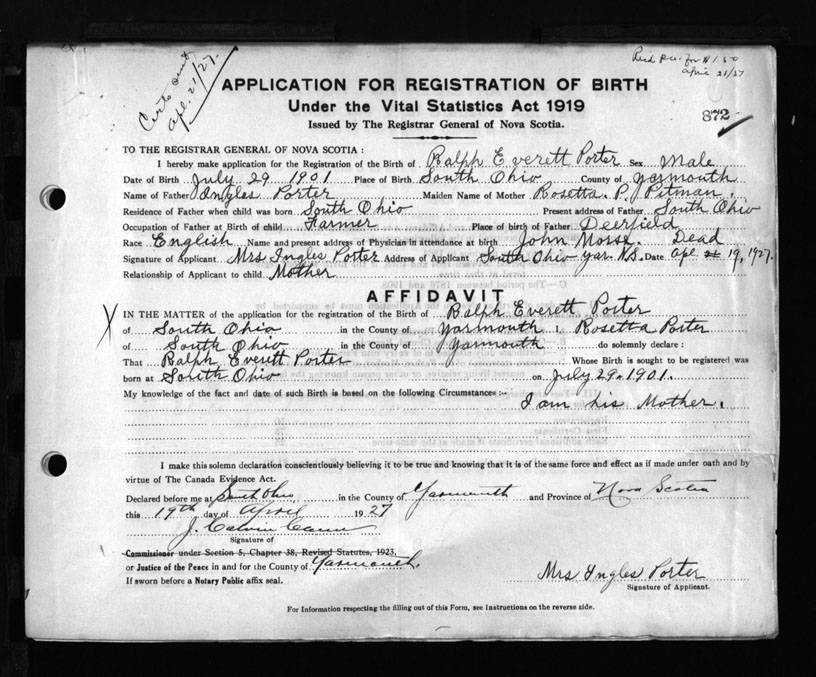 Certs sent
apl. 21/27.
Recd P.O. for $1.50
April 21/27
APPLICATION FOR REGISTRATION OF BIRTH
Under the Vital Statistics Act 1919
Issued by The Registrar General of Nova Scotia.
872
TO THE REGISTRAR GENERAL OF NOVA SCOTIA :
I hereby make application for the Registration of the Birth of Ralph Everett Porter Sex Male
Date of Birth July 29 1901 Place of Birth South Ohio County of Yarmouth
Name of Father Ingles Porter Maiden Name of Mother Rosetta P. Pitman.
Residence of Father when child was born South Ohio Present address of Father South Ohio
Occupation of Father at Birth of child Farmer Place of birth of Father Deerfield
Race English Name and present address of Physician in attendance at birth John Morse. Dead
Signature of Applicant Mrs Ingles Porter Address of Applicant South Ohio Yar. N.S. Date Apl 19, 1927.
Relationship of Applicant to child Mother
AFFIDAVIT
X IN THE MATTER of the application for the registration of the Birth of Ralph Everett Porter
of South Ohio in the County of Yarmouth I, Rosetta Porter
of South Ohio in the County of Yarmouth do solemnly declare :
That Ralph Everett Porter Whose Birth is sought to be registered was
born at South Ohio on July 29. 1901.
My knowledge of the fact and date of such Birth is based on the following Circumstances :-
I am his Mother.
I make this solemn declaration conscientiously believing it to be true and knowing that it is of the same force and effect as if made under oath and by
virtue of The Canada Evidence Act.
Declared before me at South Ohio in the County of Yarmouth and Province of Nova Scotia
this 19th day of April 1927
J. Calvin Cann
Signature of
Commissioner under Section 5, Chapter 38, Revised Statutes, 1923.
or Justice of the Peace in and for the County of Yarmouth.
If sworn before a Notary Public affix seal.
Mrs Ingles Porter
Signature of Applicant.
For Information respecting the filling out of this Form, see Instructions on the reverse side.